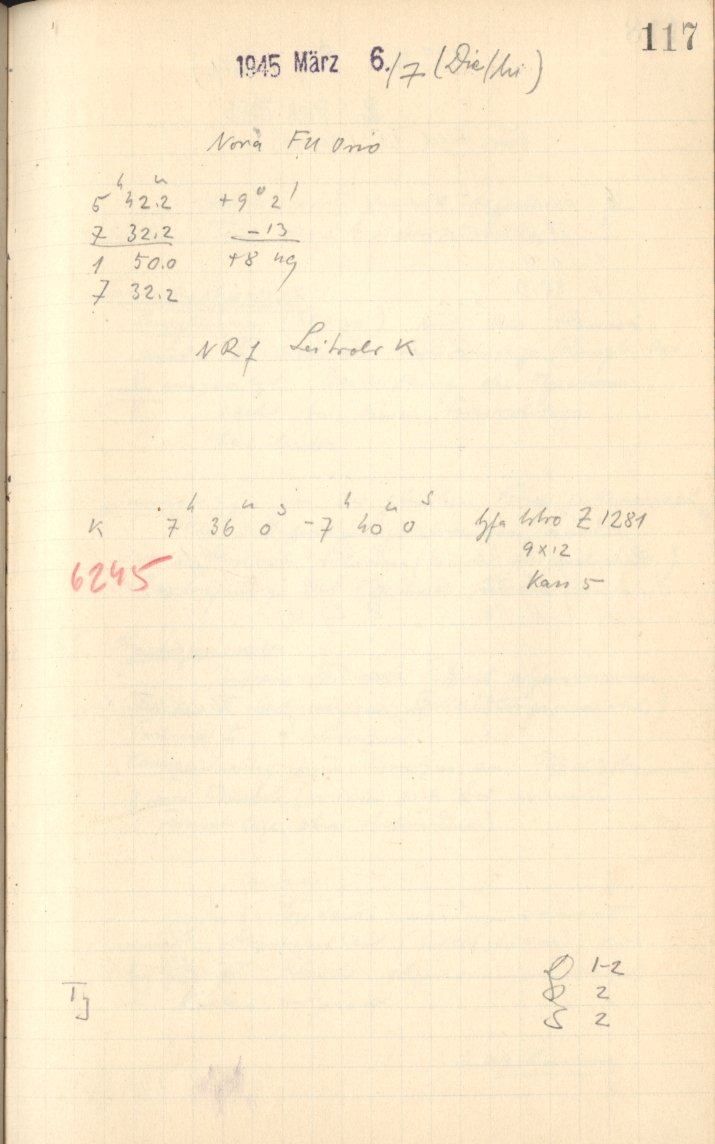 117
1945 März 6./7 (Die/Mi)
Nova FU Orio
5h 42.2m +9° 2'
7 32.2 -13
1 50.0 +8 49
7 32.2
NR 7 Leitrohr K
K 7h 36m 0s - 7h 40m 0s Agfa Astro Z 1281
9x12
6245 Kass 5
1-2
2
S 2